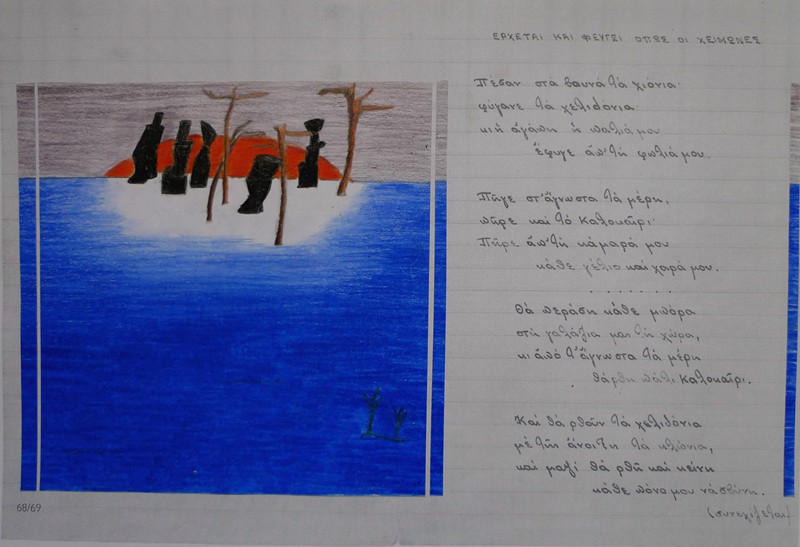 ΕΡΧΕΤΑΙ ΚΑΙ ΦΕΥΓΕΙ ΟΠΩΣ ΟΙ ΧΕΙΜΩΝΕΣ
Πέσαν στά βουνά τά χιόνια·
φύγανε τά χελιδόνια·
κι ἡ ἀγάπη ἡ παλιά μου
ἔφυγε ἀπ' τή φωλιά μου.
Πῆγε στ' ἄγνωστα τά μέρη,
πῆρε καί τό Καλοκαῖρι·
Πῆρε ἀπ' τή κάμαρά μου
κάθε γέλιο καί χαρά μου.
. . . . . . .
Θά περάση κάθε μπόρα
στή γαλάζια μας τή χώρα,
κι ἀπό τ' ἄγνωστα τά μέρη
θἄρθη πάλι Καλοκαῖρι.
Καί θά ρθοῦν τά χελιδόνια
μέ τῆς ἄνοιξη τά κλώνια,
καί μαζί θά ρθῆ καί κείνη
κάθε πόνο μου νά σβύνη.
(συνεχίζεται)
68/69